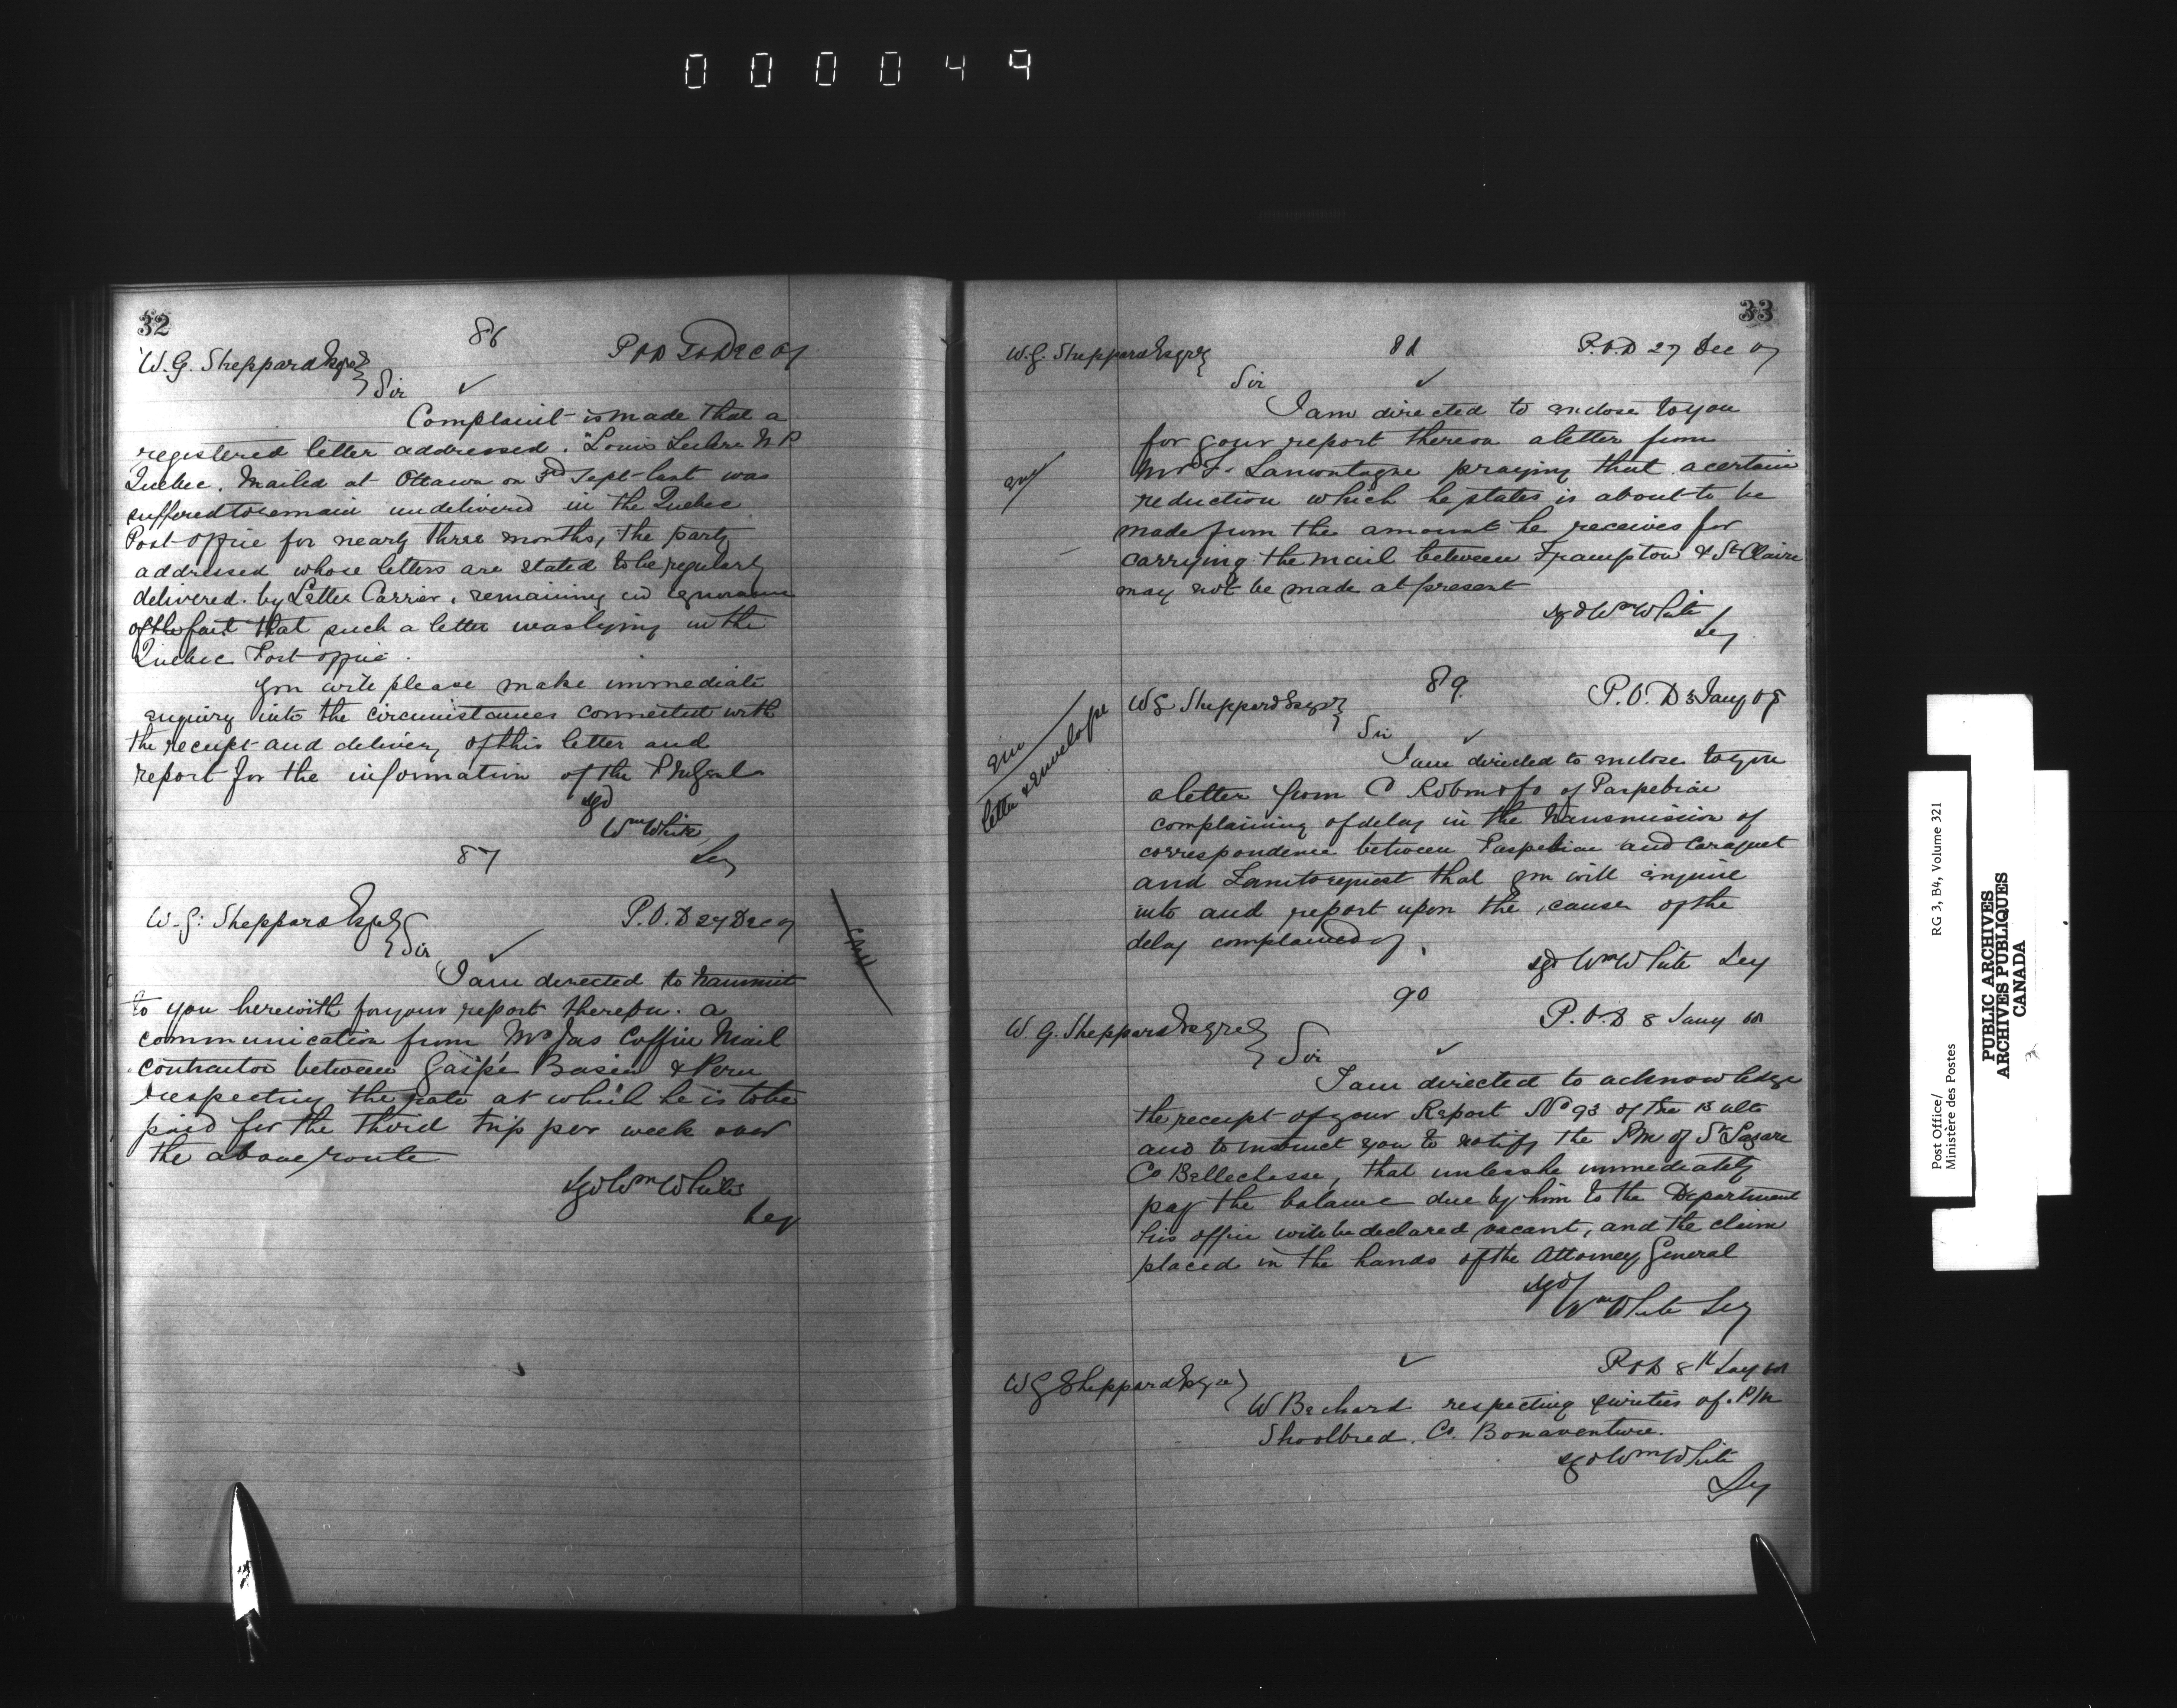 000049
32
86
W. G. Sheppard Esqre
P.O.D Dec 67
Sir
Complaint is made that a
registered letter addressed "Louis N P
Quebec, Mailed at Ottawa on 3rd Sept last was
suffered to remain undelivered in the Quebec
Post office for nearly three months, the party
addressed whose letters are stated to be regularly
delivered by Letter Carrier, remaining in ignorance
of the fact that such a letter was lying in the
Quebec Post office.
You will please make immediate
enquiry into the circumstances connected with
the receipt and delivery of this letter and
report for the information of the
sgd
Wm White
Secy
87
W. G. Sheppard Esqre
P.O.D 27 Dec 67
Sir
I am directed to transmit
to you herewith for your report thereon a
communication from Mr Jas Coffin Mail
Contractor between Gaspé Basin & Peru
respecting the rate at which he is to be
paid for the third trip per week over
the above route
sgd Wm White
Secy
33
W. G. Sheppard Esqre
88
P.O.D 27 Dec 67
Sir
I am directed to enclose to you
for your report thereon a letter from
Mr F. Lamontagne praying that a certain
reduction which he states is about to be
made from the amount he receives for
carrying the mail between Frampton & St Claire
may not be made at present
sgd Wm White
Secy
89
W G Sheppard Esqre
P.O.D 3 Jany 68
Sir
letter & envelope
I am directed to enclose to you
a letter from C Robin & Co of Paspebiac
complaining of delay in the transmission of
correspondence between Paspebiac and Caraquet
and I am to request that you will enquire
into and report upon the cause of the
delay complained of
sgd Wm White Secy
90
W. G. Sheppard Esqre
P.O.D 8 Jany 68
Sir
I am directed to acknowledge
the receipt of your Report No 93 of the ulto
and to instruct you to notify the P M of St Lazare
Co Bellechasse, that unless he immediately
pay the balance due by him to the Department
his office will be declared vacant, and the claim
placed in the hands of the Attorney General
sgd
Wm White Secy
P.O.D 8th Jany 68
W G Sheppard Esqre
W Bechard respecting sureties of P M
Shoolbred. Co. Bonaventure.
sgd Wm White
Secy
Post Office/ RG 3, B4, Volume 321
Ministère des Postes
PUBLIC ARCHIVES
ARCHIVES PUBLIQUES
CANADA